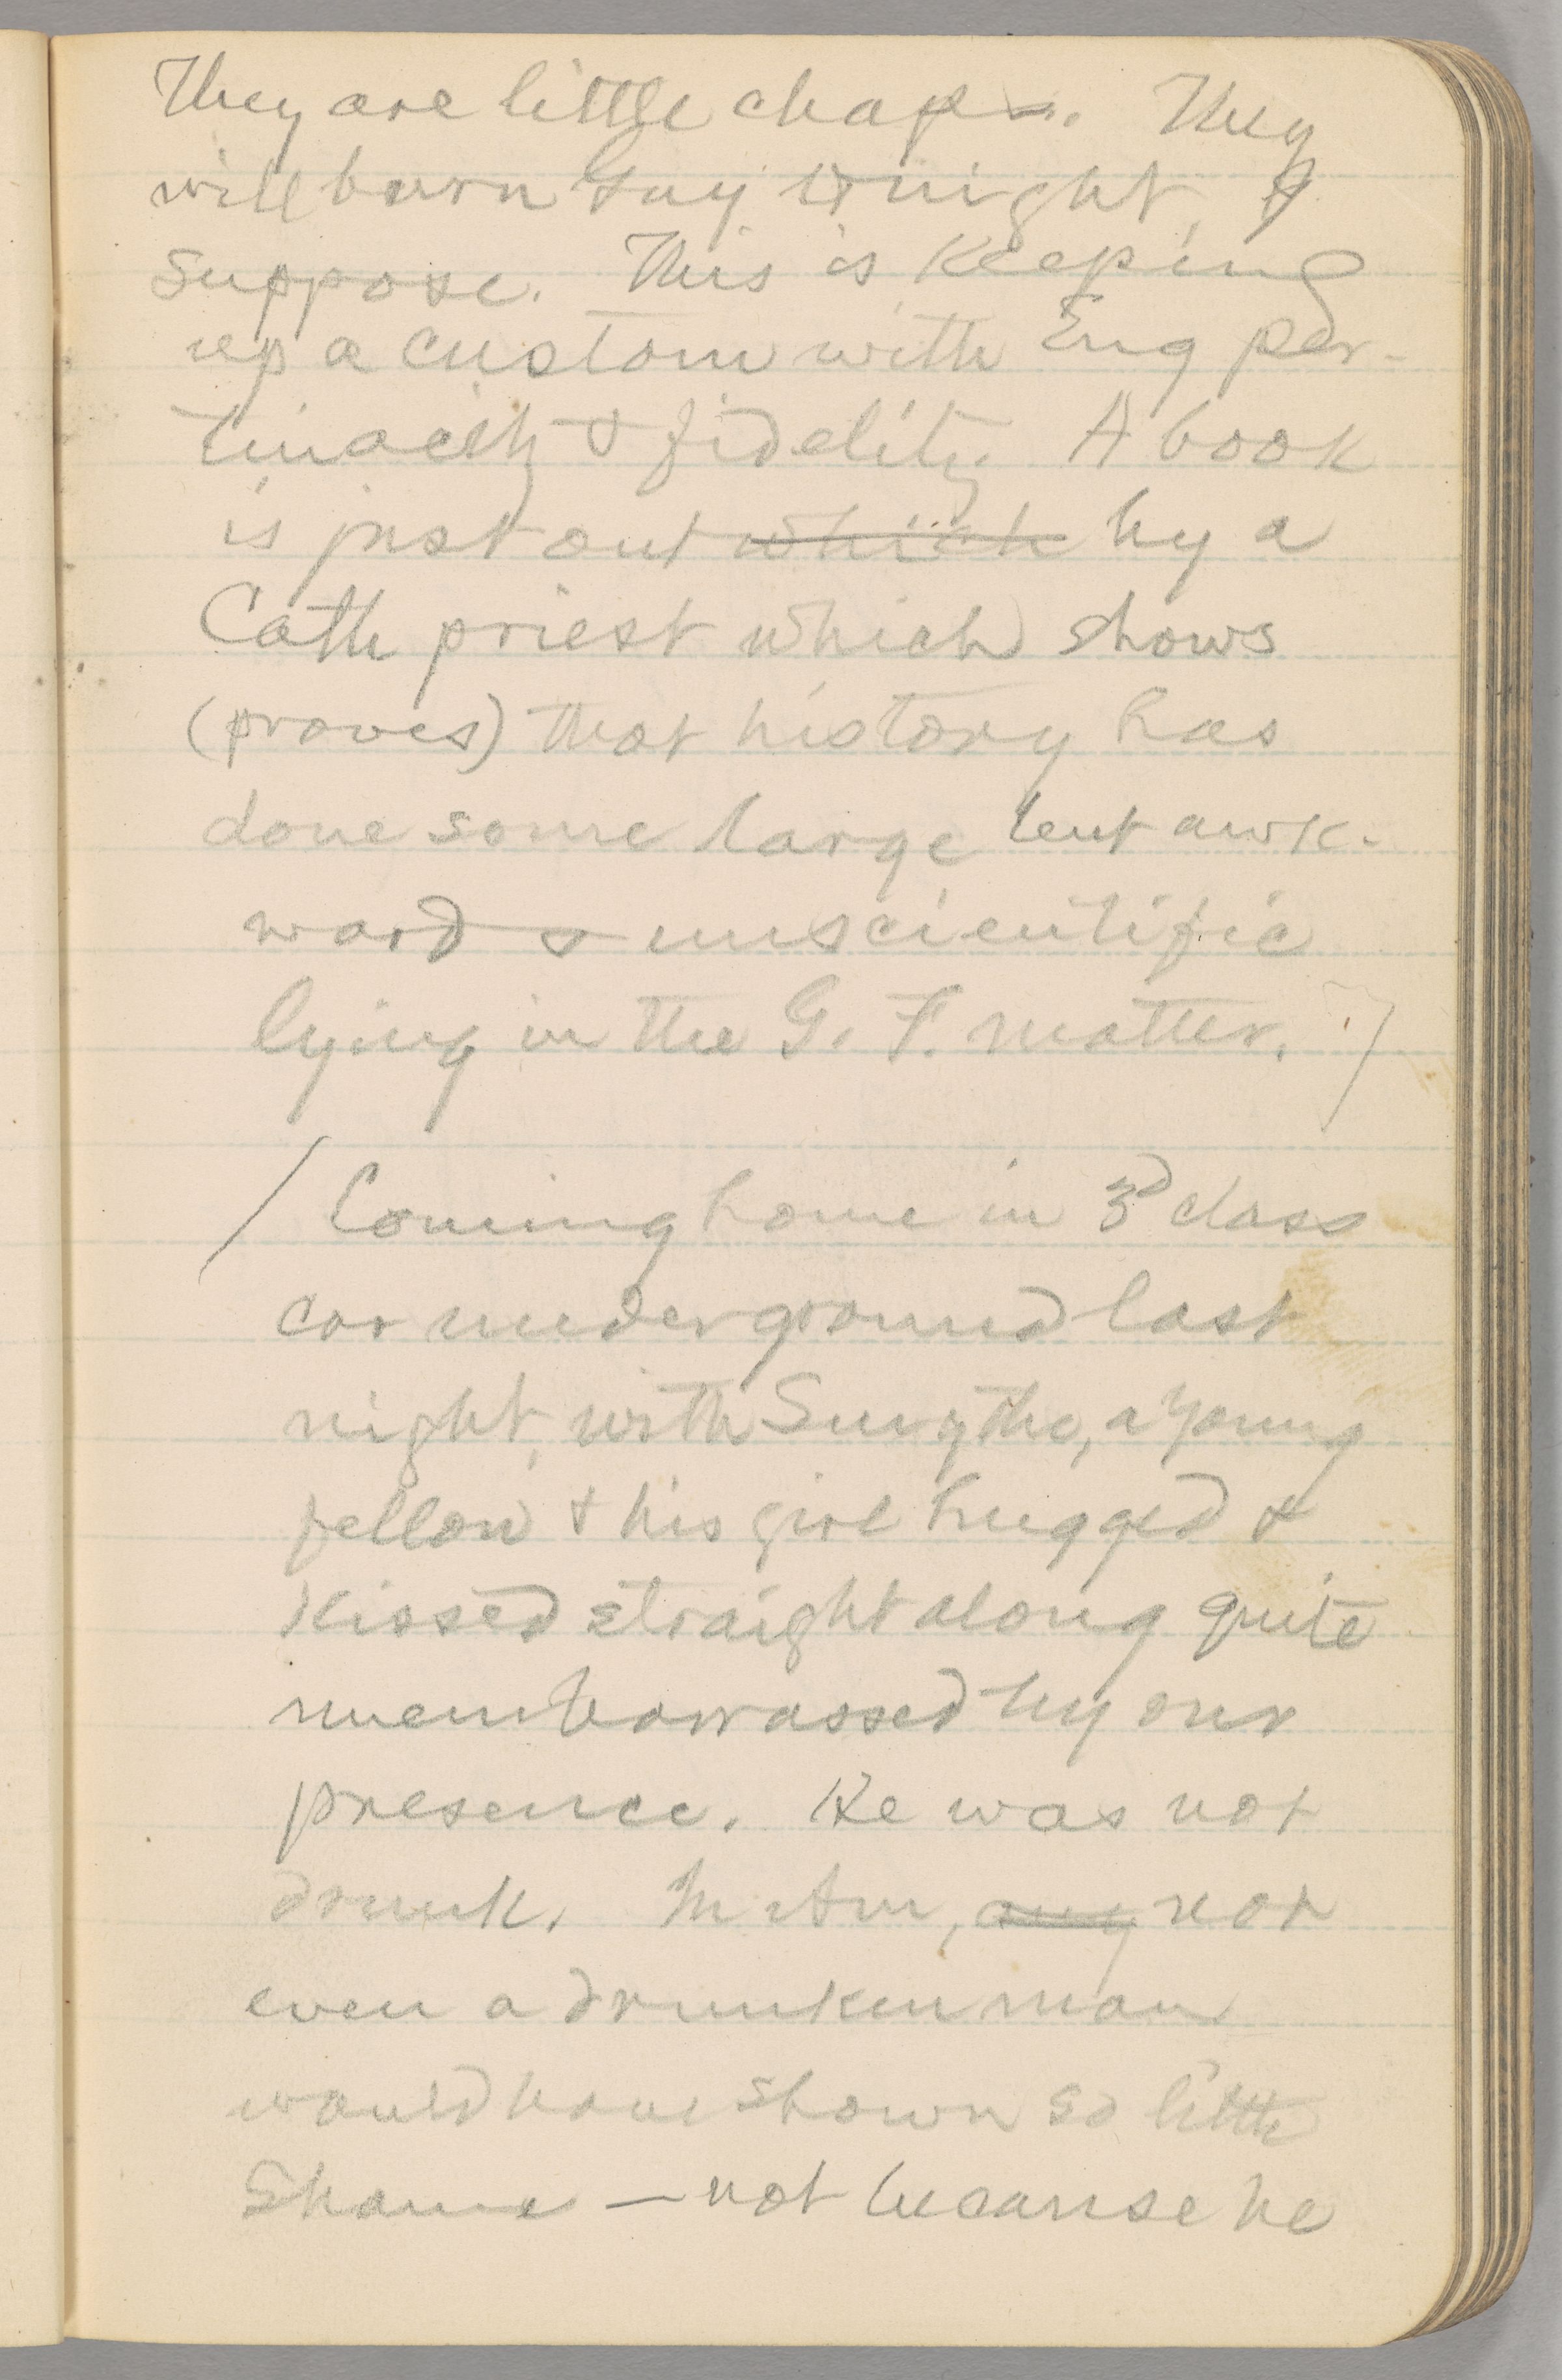 They are little chaps. They
will burn Guy tonight, I
suppose. This is keeping
up a custom with Eng per-
tinacity & fidelity. A book
is just out which by a
Cath priest which shows
(proves) that history has
done some large but awk-
ward & unscientific
lying in the G. F. matter. /
/ Coming home in 3d class
car underground last
night, with Smythe, a young
fellow & his girl hugged &
kissed straight along quite
unembarrassed by our
presence. He was not
drunk. In Am, any not
even a drunken man
would have shown so little
shame — not because he